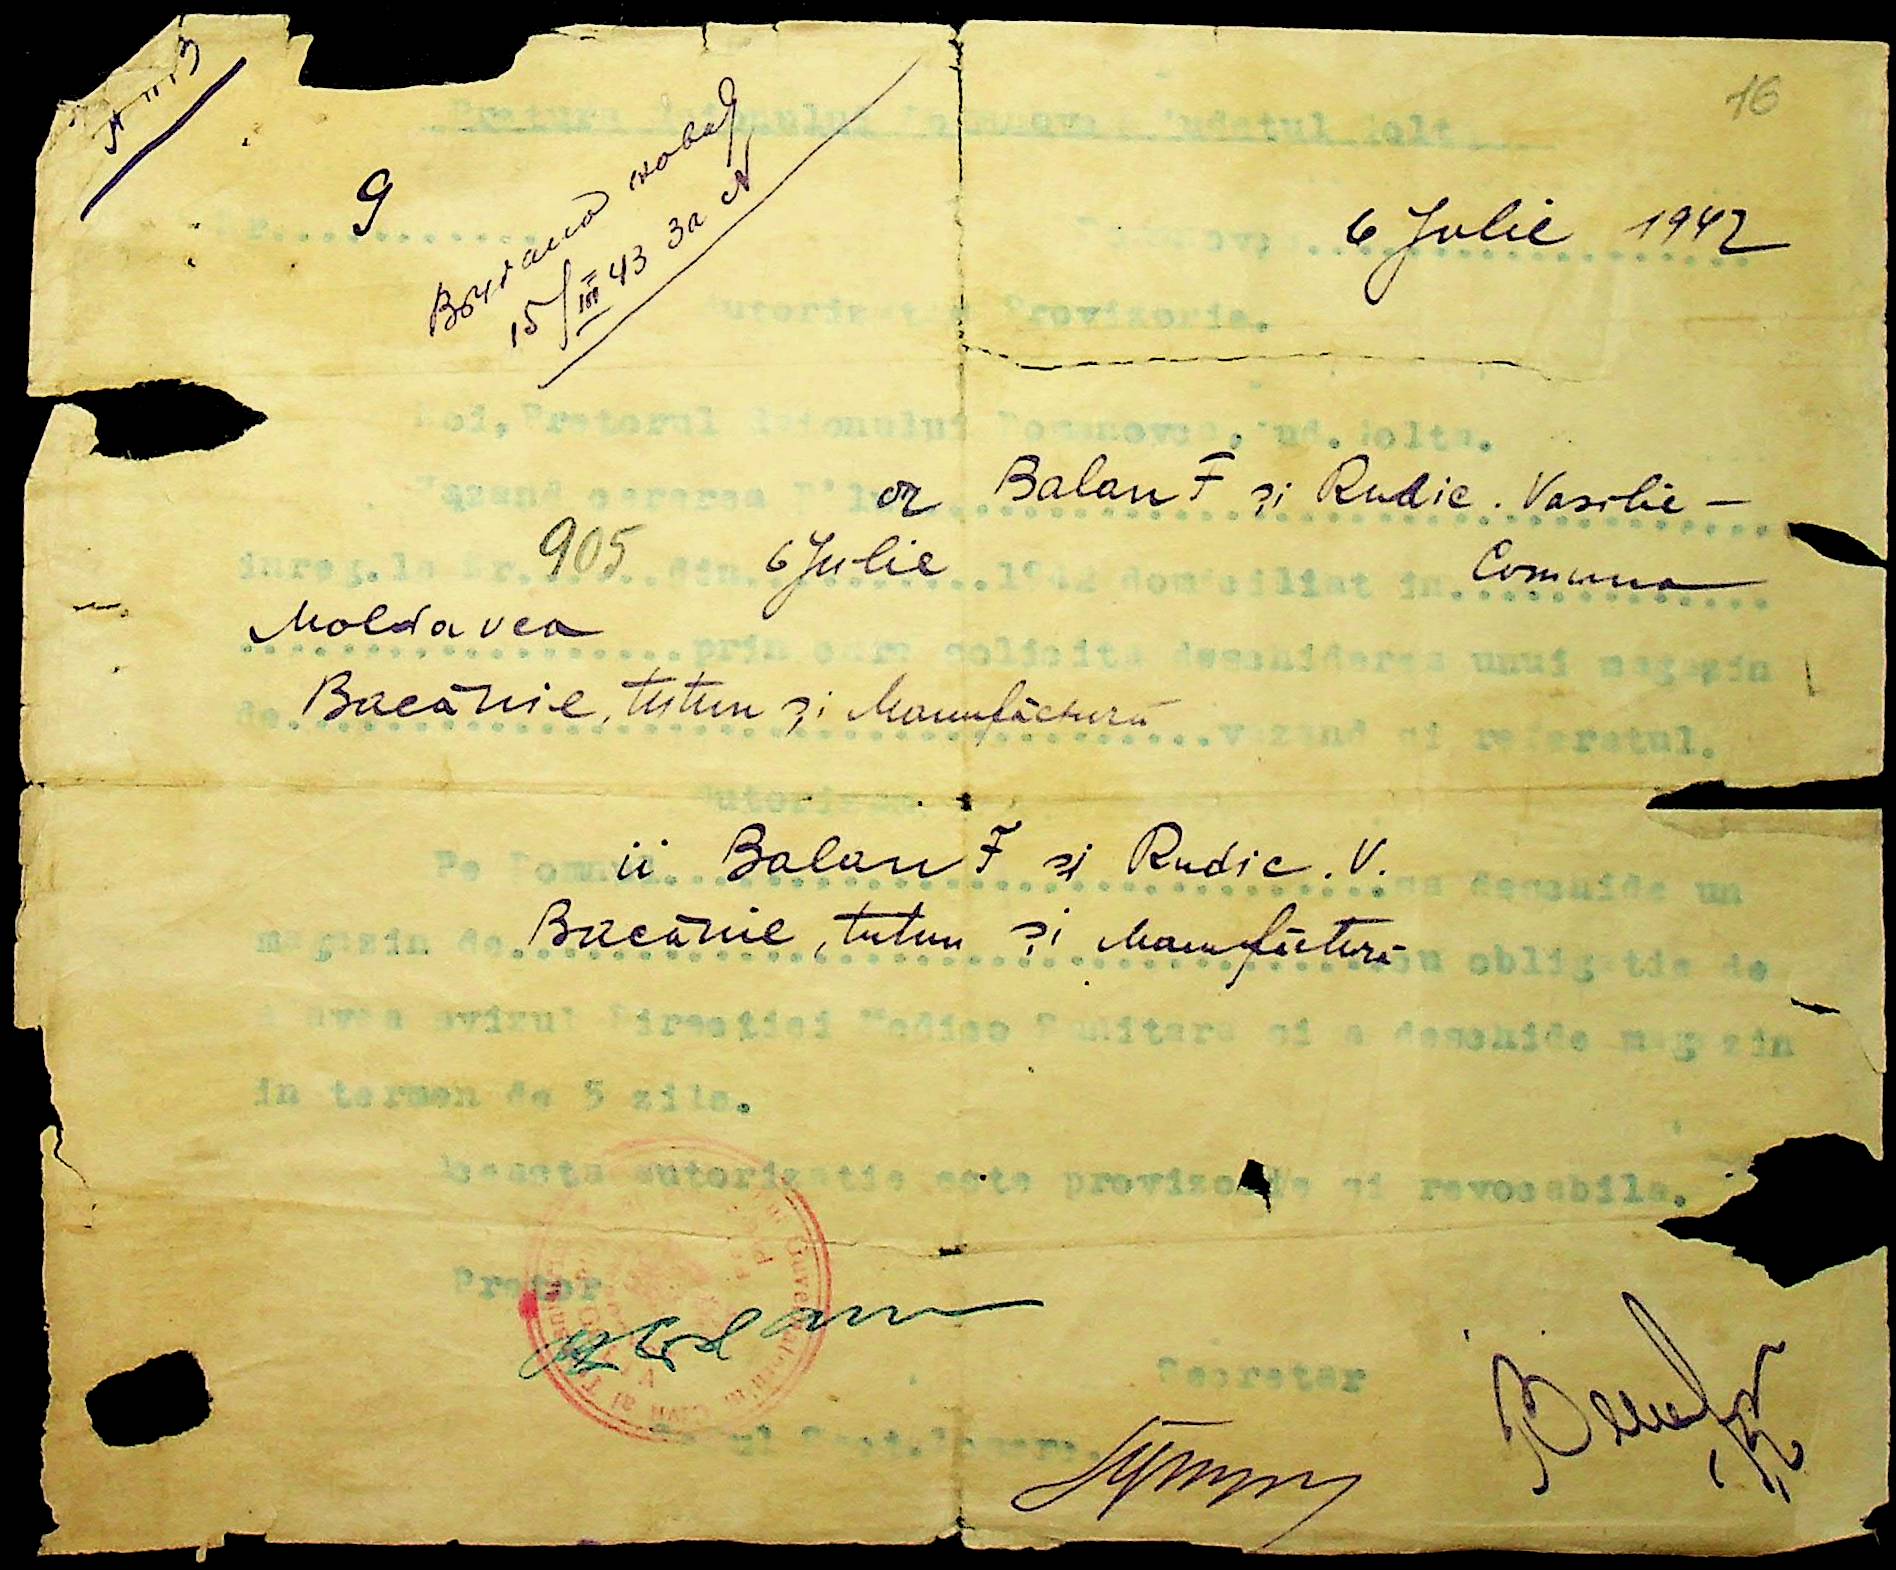 16
Pretura Raionului Domanovca Judetul Golta
9
Выдана новая
15/III 43 за N
6 Julie 1942
Autorizatie Provizorie.
Noi, Pretorul Raionului Domanovca, Jud. Golta.
Vazand cererea D'lor Balan F și Rudic. Vasilie –
inreg. la Nr. 905 din 6 Julie 1942 domiciliat in Comuna
Moldavca prin care solicita deschiderea unui magazin
de Bacănie, tutun și Manufăctură vazand si referatul.
Autorizam
Pe Domnii Balan F și Rudic. V. sa deschide un
magazin de Bacănie, tutun și Manufăctură cu obligatia de
a avea avizul Directiei Medico Sanitara si a deschide magazin
in termen de 5 zile.
Aceasta autorizatie este provizorie si revocabila.
Pretor
Secretar